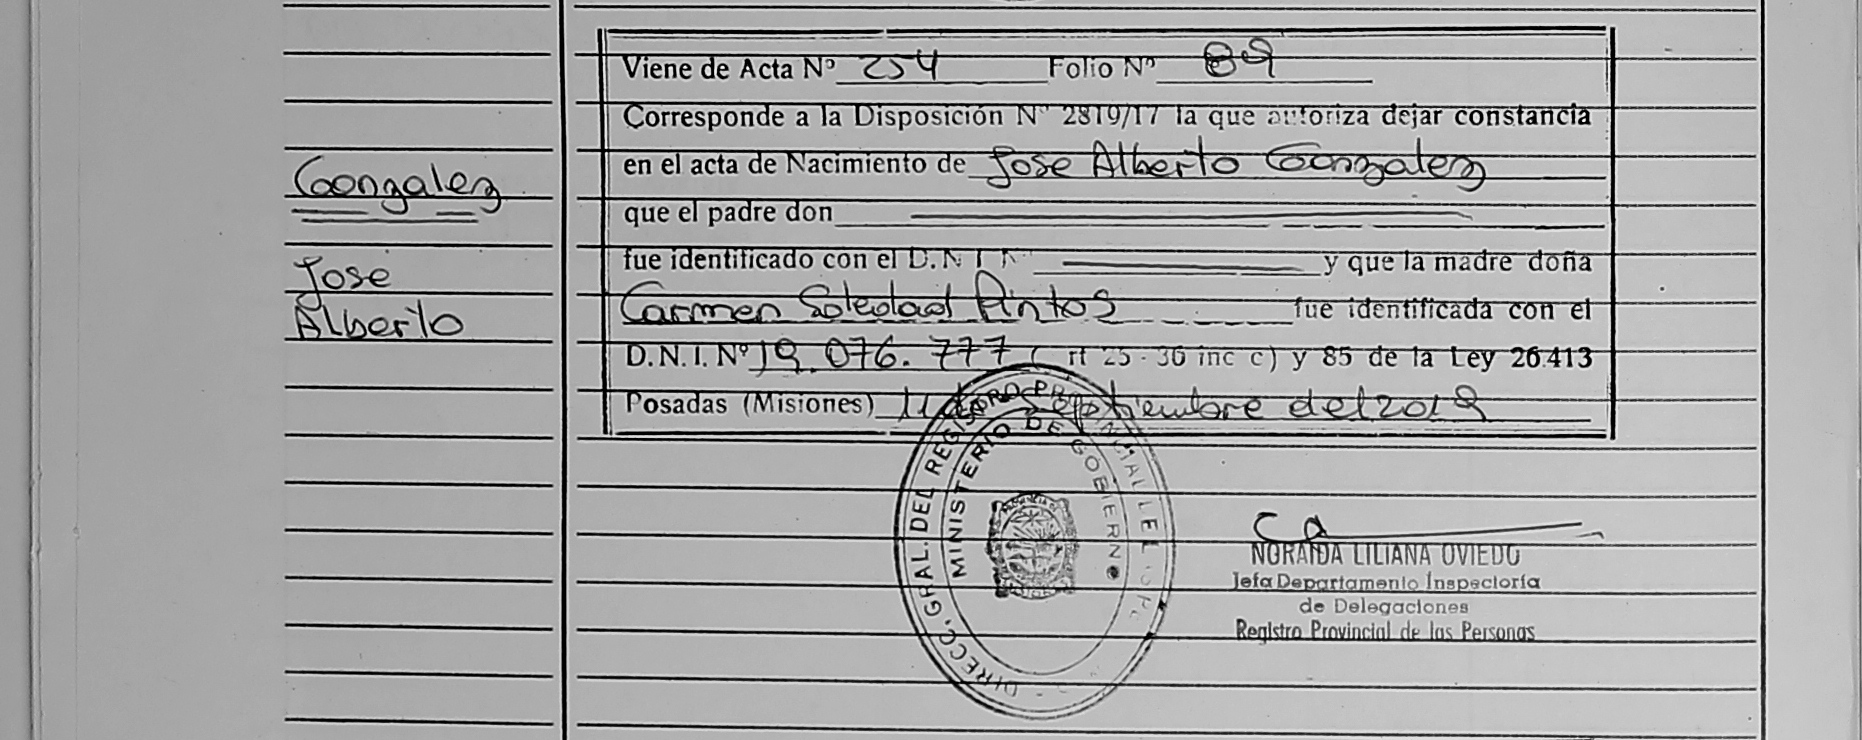 Gonzalez
Jose
Alberto
Viene de Acta Nº 254 Folio Nº 89
Corresponde a la Disposición Nº 2819/17 la que autoriza dejar constancia
en el acta de Nacimiento de Jose Alberto Gonzalez
que el padre don
fue identificado con el D.N.I Nº y que la madre doña
Carmen Soledad Pintos fue identificada con el
D.N.I. Nº 19.076.777 ( rt 25 - 36 inc c) y 85 de la Ley 26.413
Posadas (Misiones) 11 de Septiembre del 2019
DIRECC. GRAL. DEL REGISTRO PROVINCIAL DE
MINISTERIO DE GOBIERNO
NORAIDA LILIANA OVIEDO
Jefa Departamento Inspectoría
de Delegaciones
Registro Provincial de las Personas